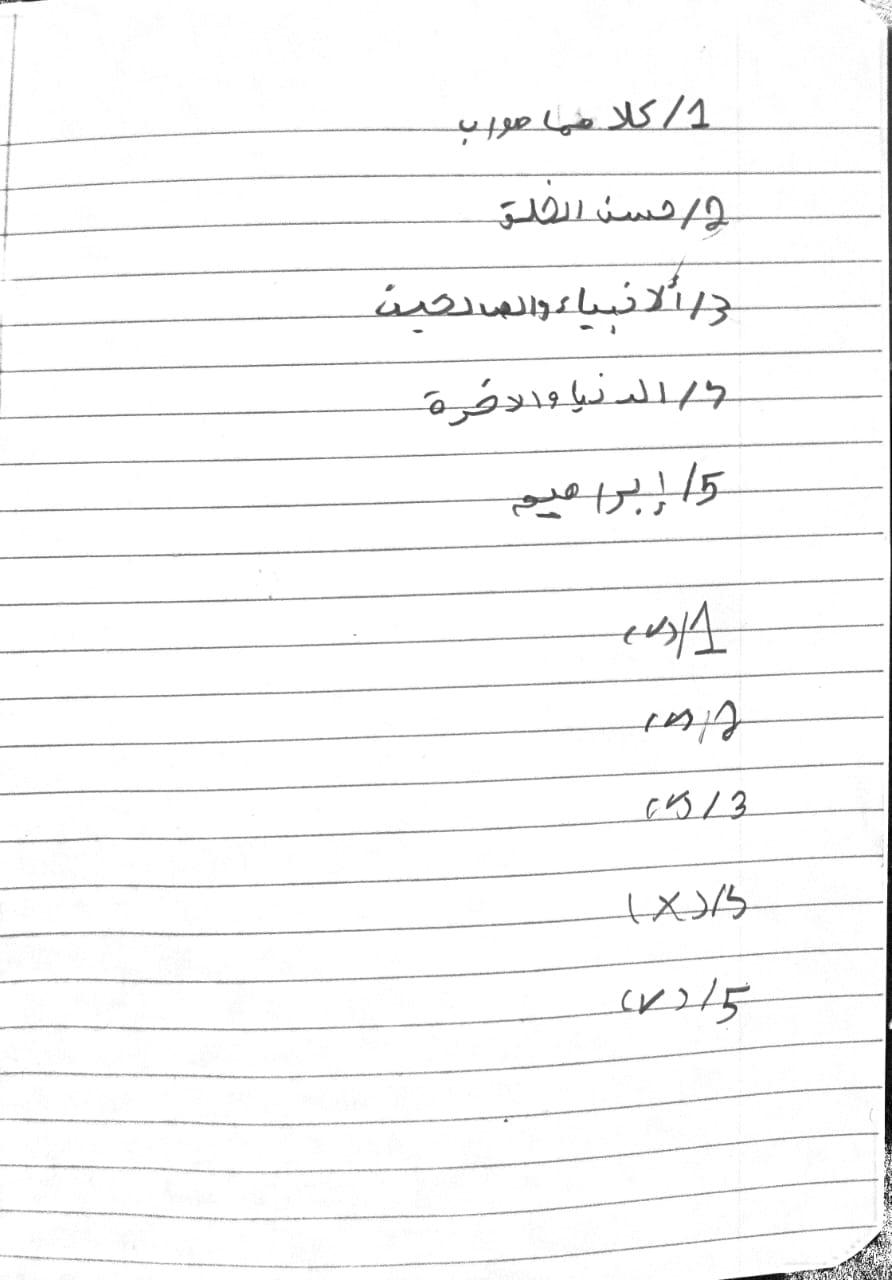 1/ كلا هما صواب
2/ حسن الخلق
3/ ألانبياء والصالحين
4/ الدنيا والاخرة
5/ إبراهيم
1/ (✓)
2/ (✓)
3/ (✓)
4/ (X)
5/ (✓)